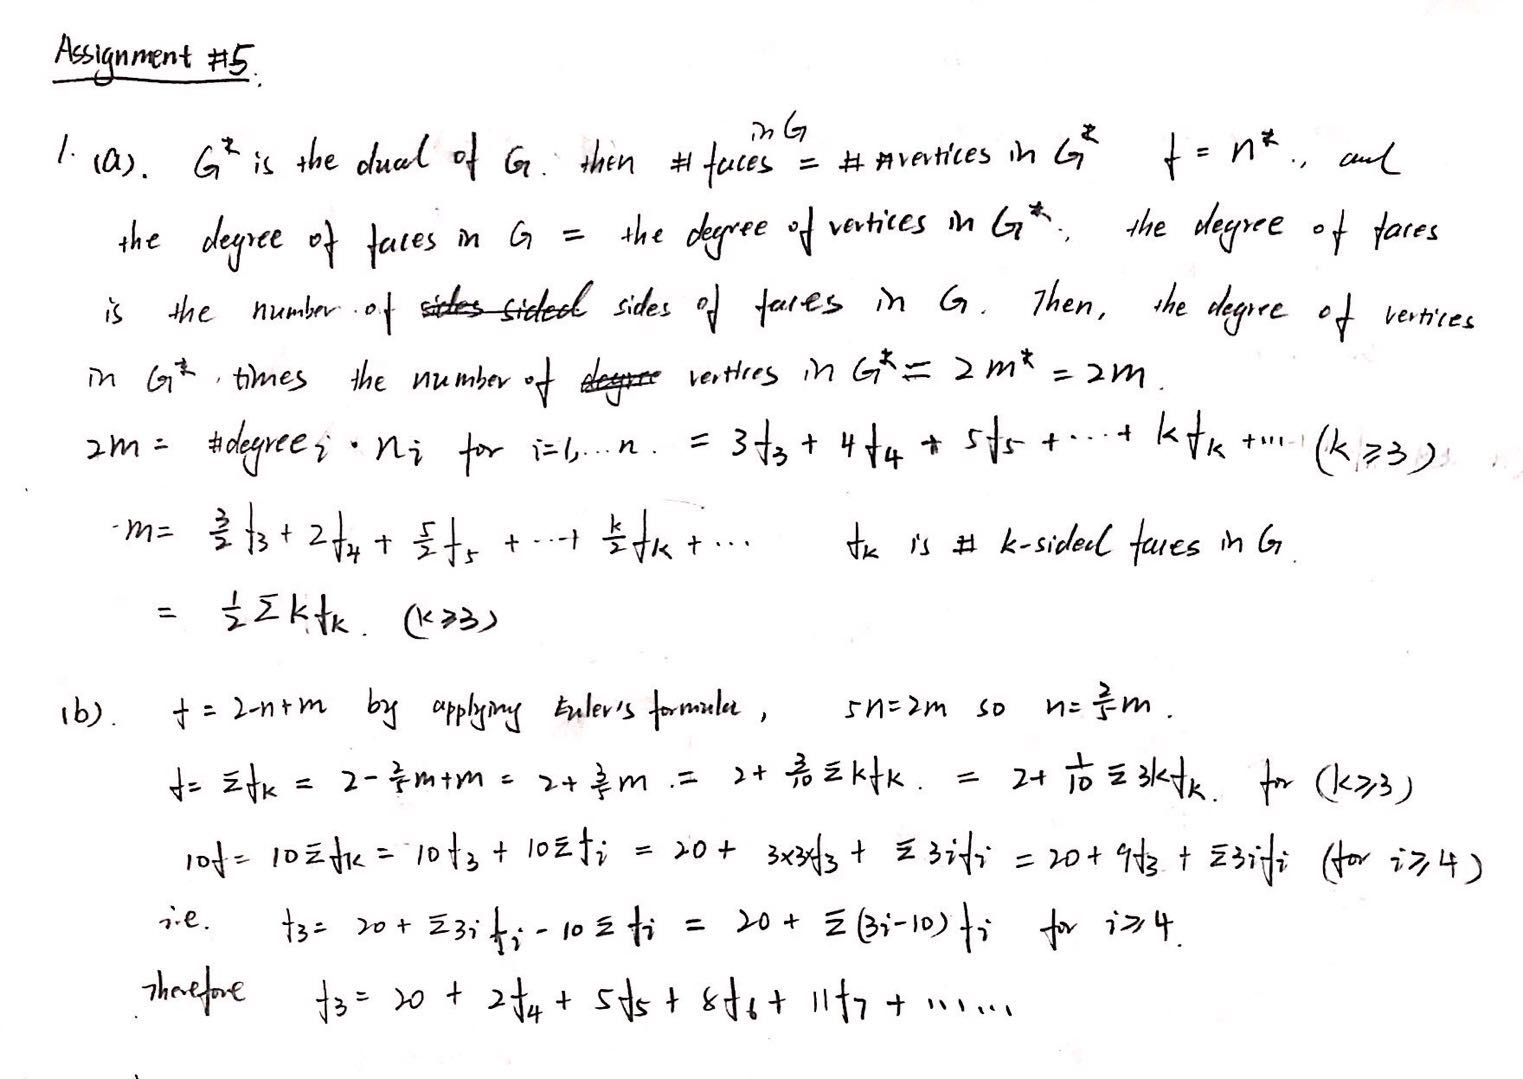 Assignment #5.
1. (a). G* is the dual of G. then # faces in G = # vertices in G* f = n*., and
the degree of faces in G = the degree of vertices in G*., the degree of faces
is the number of sides sided sides of faces in G. Then, the degree of vertices
in G*. times the number of degree vertices in G* = 2m* = 2m.
2m = #degree i · nᵢ for i=1,...n. = 3f₃ + 4f₄ + 5f₅ + ··· + kfₖ + ··· (k ≥ 3)
m = 3/2 f₃ + 2f₄ + 5/2 f₅ + ··· + k/2 fₖ + ··· fₖ is # k-sided faces in G.
= 1/2 Σ kfₖ. (k ≥ 3)
(b). f = 2-n+m by applying Euler's formula, 5n=2m so n= 2/5 m.
f= Σfₖ = 2 - 2/5 m + m = 2 + 3/5 m. = 2 + 3/10 Σ kfₖ. = 2 + 1/10 Σ 3kfₖ. for (k ≥ 3)
10f = 10Σfₖ = 10f₃ + 10Σfᵢ = 20 + 3×3×f₃ + Σ3ifᵢ = 20 + 9f₃ + Σ3ifᵢ (for i ≥ 4)
i.e. f₃ = 20 + Σ3ifᵢ - 10Σfᵢ = 20 + Σ(3i-10)fᵢ for i ≥ 4.
Therefore f₃ = 20 + 2f₄ + 5f₅ + 8f₆ + 11f₇ + ······